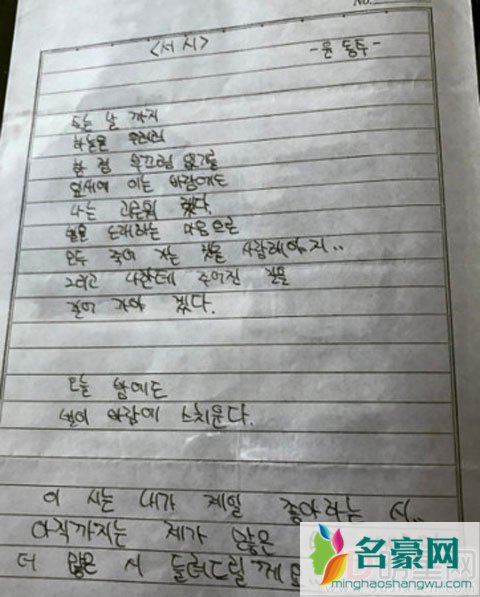 No.
<서시>
-윤 동주-
죽는 날 까지
하늘을 우러러
한 점 부끄럼 없기를
잎새에 이는 바람에도
나는 괴로워 했다.
별을 노래하는 마음으로
모두 죽어 가는 것을 사랑해야지..
그리고 나한테 주어진 길을
걸어 가야 겠다.
오늘 밤에도
별이 바람에 스치운다.
이 시는 내가 제일 좋아하는 시..
아직까지는 제가 많은
더 많은 시 들려드릴께요
名豪网